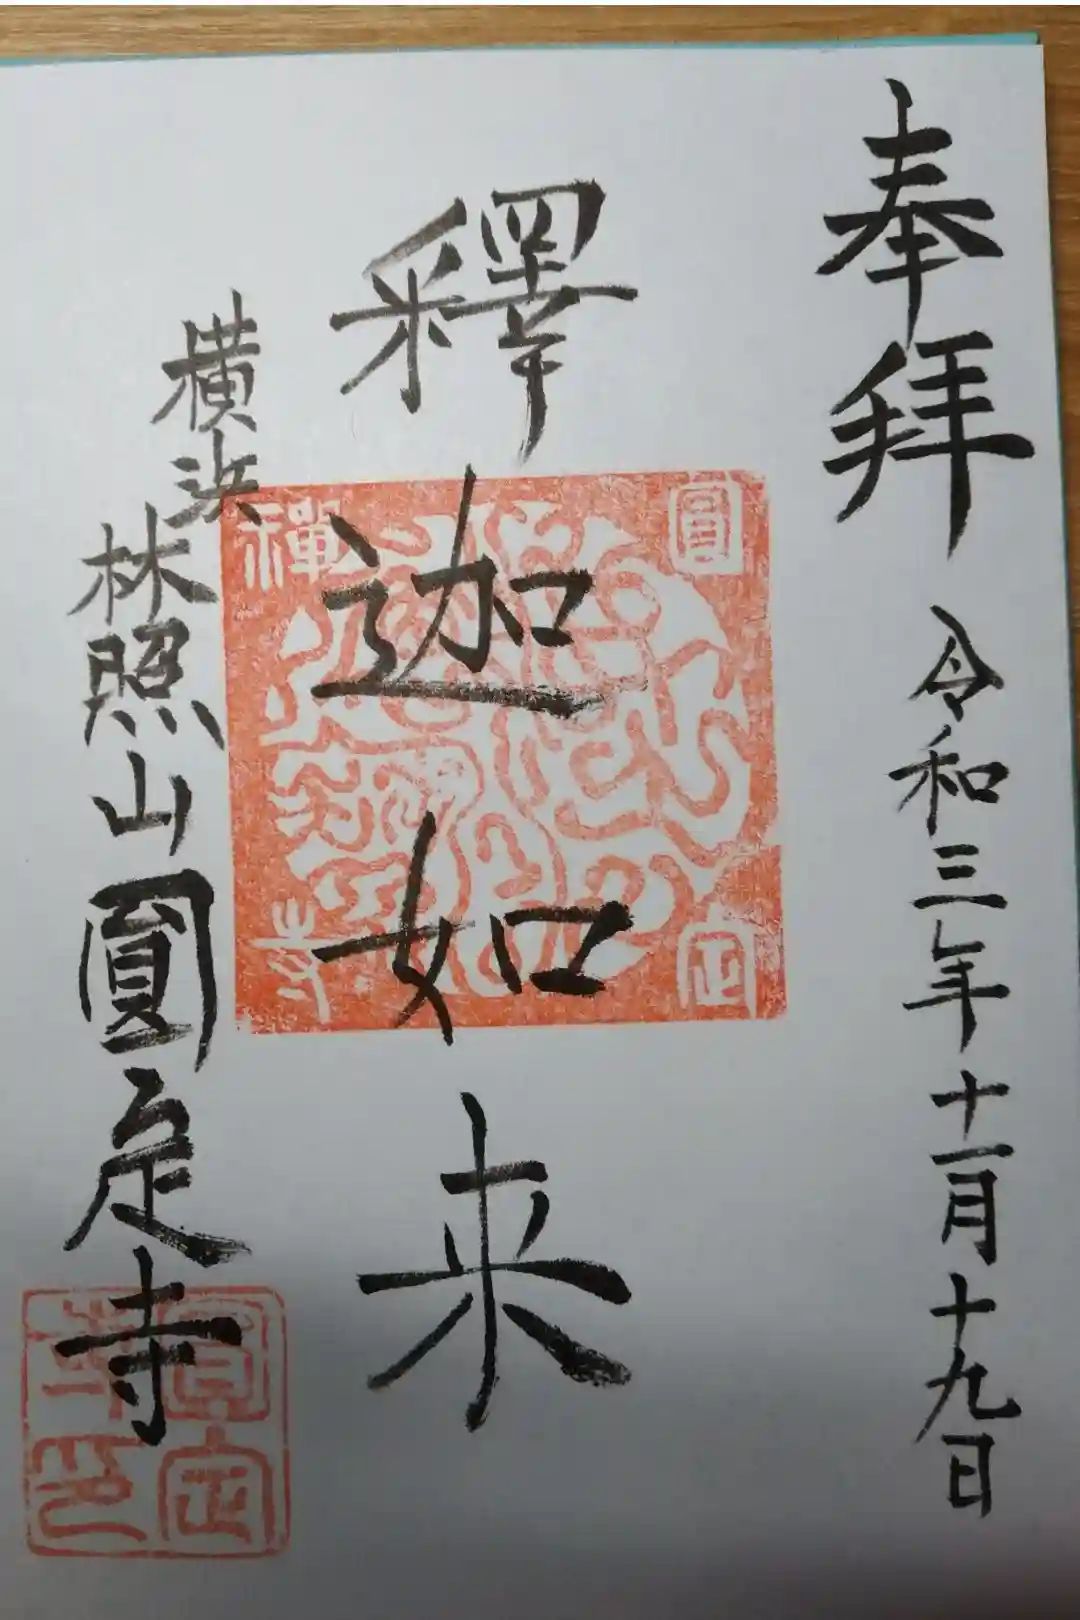 奉拜
令和三年十一月十九日
釋迦如来
横浜
林照山圓定寺
圓
定
禅
寺
圓定
寺印